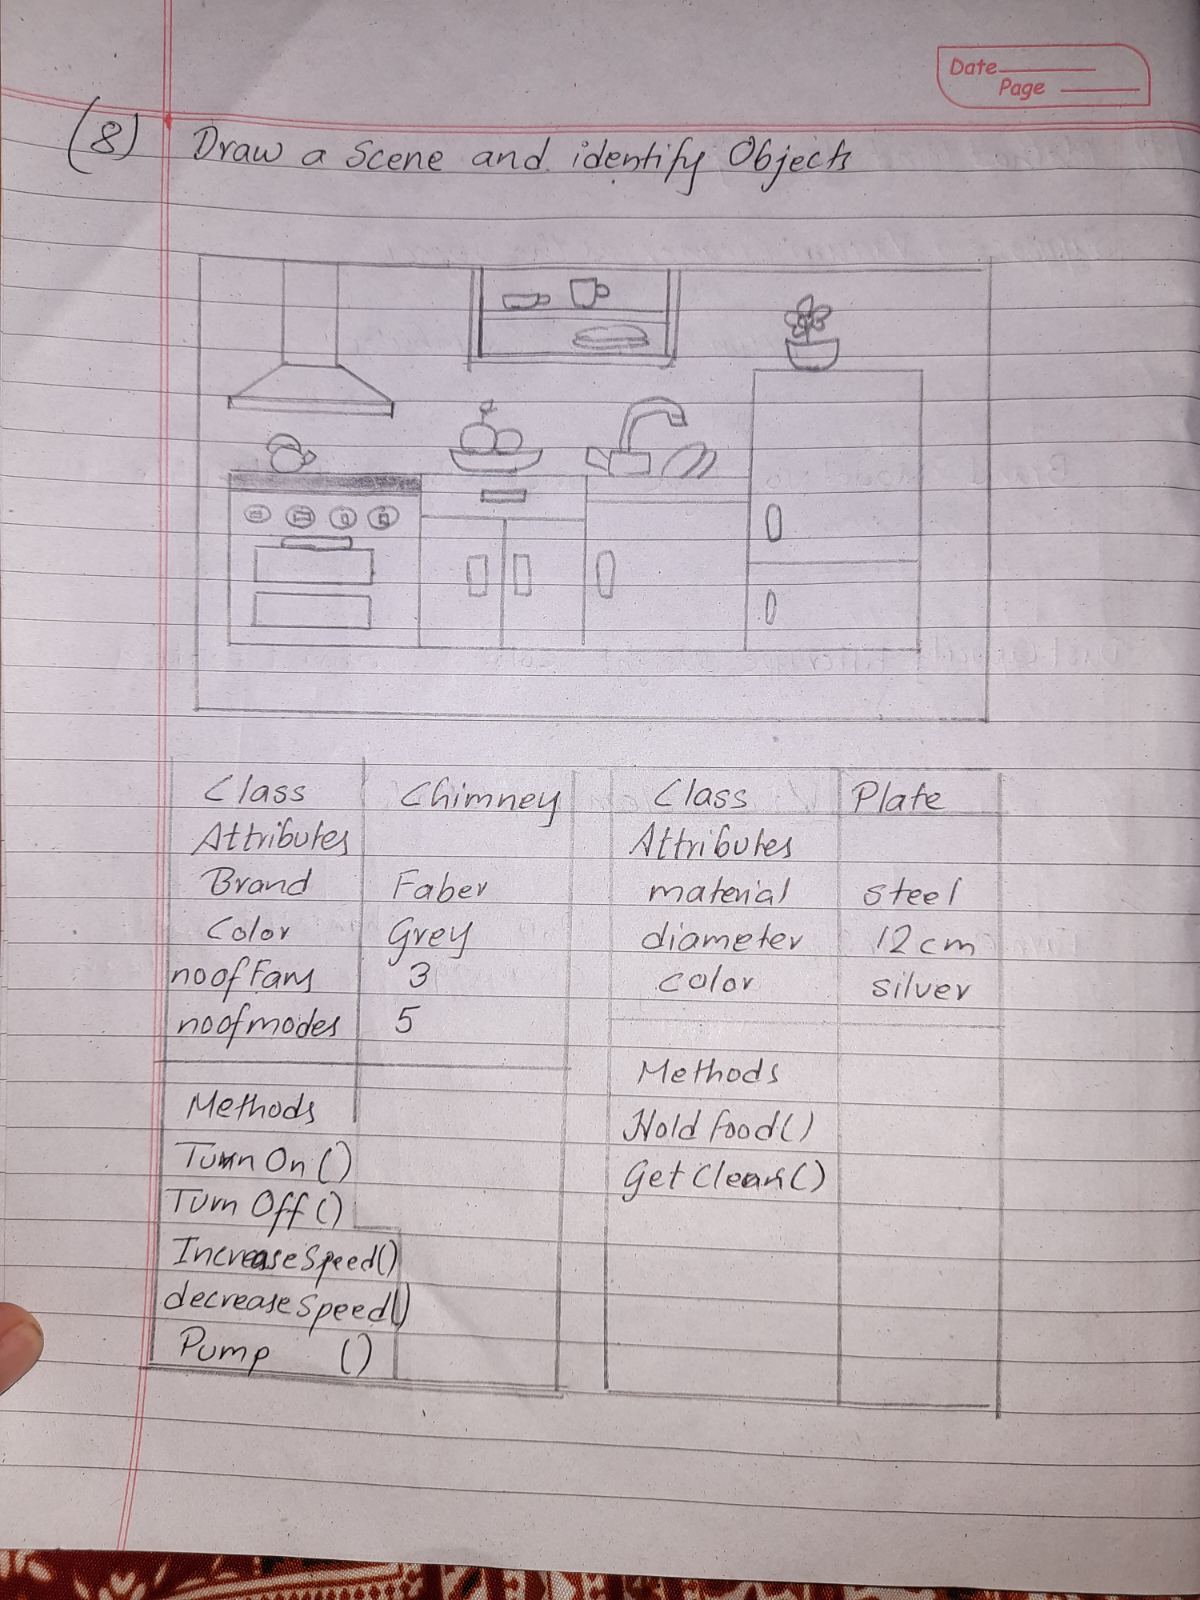 Date
Page
(8) Draw a Scene and identify Objects
Class Chimney
Attributes
Brand Faber
Color Grey
noofFans 3
noofmodes 5
Methods
Turn On ()
Turn Off ()
IncreaseSpeed()
decreaseSpeed()
Pump ()
Class Plate
Attributes
material steel
diameter 12 cm
color silver
Methods
Hold food()
Get Clean()